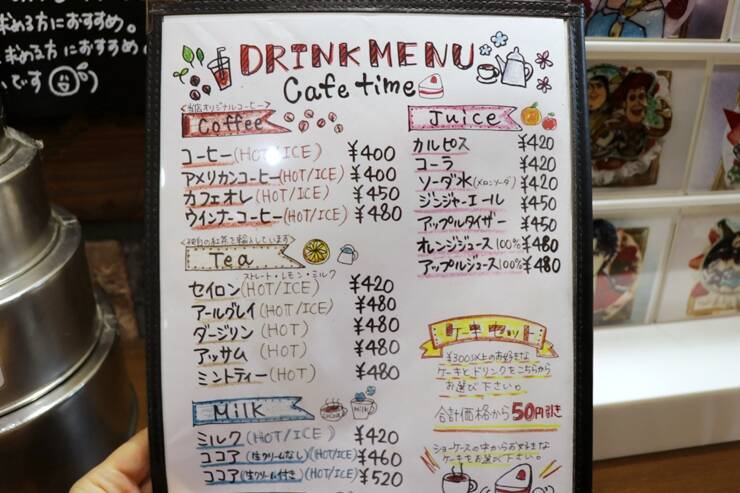 求める方におすすめ。
求める方におすすめ。
です
DRINK MENU
Cafe time
<当店オリジナルコーヒー>
Coffee
コーヒー(HOT/ICE) ¥400
アメリカンコーヒー(HOT/ICE) ¥400
カフェオレ(HOT/ICE) ¥450
ウインナーコーヒー(HOT/ICE) ¥480
紅茶を輸入しています>
Tea
ストレート・レモン・ミルク
セイロン(HOT/ICE) ¥420
アールグレイ(HOT/ICE) ¥480
ダージリン(HOT) ¥480
アッサム(HOT) ¥480
ミントティー(HOT) ¥480
Milk
ミルク(HOT/ICE) ¥420
ココア(生クリームなし)(HOT/ICE) ¥460
ココア(生クリーム付き)(HOT/ICE) ¥520
Juice
カルピス ¥420
コーラ ¥420
ソーダ水(メロンソーダ) ¥420
ジンジャーエール ¥450
アップルタイザー ¥450
オレンジジュース100% ¥480
アップルジュース100% ¥480
ケーキセット
¥300以上のお好きな
ケーキとドリンクをこちらから
お選び下さい。
合計価格から50円引き
ショーケースの中からお好きな
ケーキをお選び下さい。